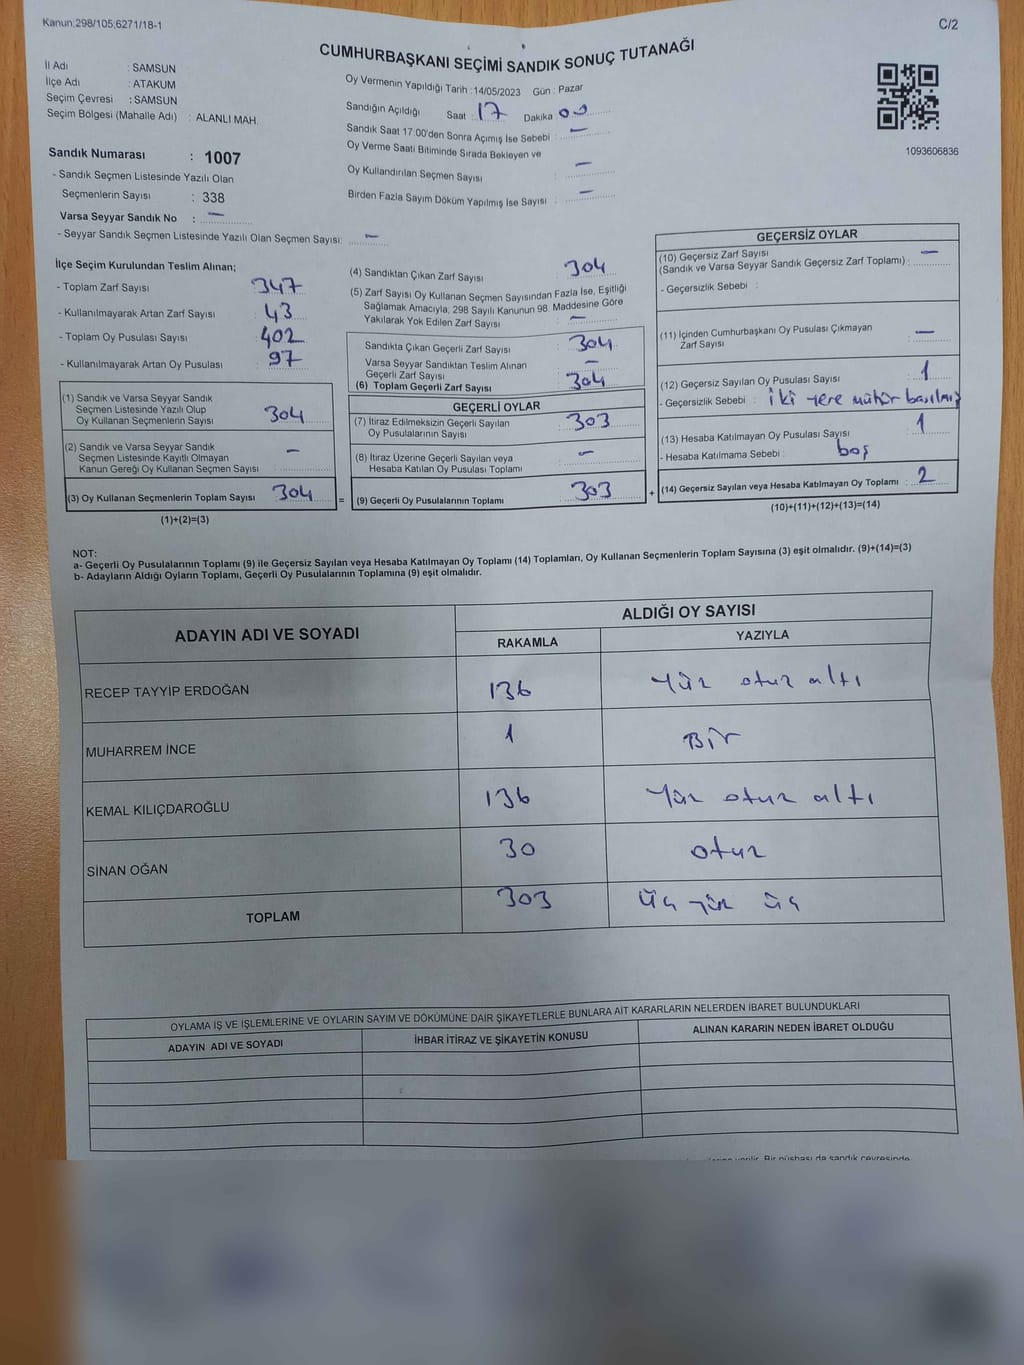 Kanun;298/105;6271/18-1
C/2
CUMHURBAŞKANI SEÇİMİ SANDIK SONUÇ TUTANAĞI
İl Adı : SAMSUN
İlçe Adı : ATAKUM
Seçim Çevresi : SAMSUN
Seçim Bölgesi (Mahalle Adı) : ALANLI MAH.
Sandık Numarası : 1007
- Sandık Seçmen Listesinde Yazılı Olan
Seçmenlerin Sayısı : 338
Varsa Seyyar Sandık No : —
- Seyyar Sandık Seçmen Listesinde Yazılı Olan Seçmen Sayısı: —
Oy Vermenin Yapıldığı Tarih :14/05/2023 Gün : Pazar
Sandığın Açıldığı Saat : 17 Dakika 00
Sandık Saat 17:00'den Sonra Açımış İse Sebebi : —
Oy Verme Saati Bitiminde Sırada Bekleyen ve
Oy Kullandırılan Seçmen Sayısı : —
Birden Fazla Sayım Döküm Yapılmış İse Sayısı : —
1093606836
İlçe Seçim Kurulundan Teslim Alınan;
- Toplam Zarf Sayısı 347
- Kullanılmayarak Artan Zarf Sayısı : 43
- Toplam Oy Pusulası Sayısı : 402
- Kullanılmayarak Artan Oy Pusulası : 97
(1) Sandık ve Varsa Seyyar Sandık
Seçmen Listesinde Yazılı Olup
Oy Kullanan Seçmenlerin Sayısı : 304
(2) Sandık ve Varsa Seyyar Sandık
Seçmen Listesinde Kayıtlı Olmayan
Kanun Gereği Oy Kullanan Seçmen Sayısı : —
(3) Oy Kullanan Seçmenlerin Toplam Sayısı : 304
(1)+(2)=(3)
(4) Sandıktan Çıkan Zarf Sayısı : 304
(5) Zarf Sayısı Oy Kullanan Seçmen Sayısından Fazla İse, Eşitliği
Sağlamak Amacıyla, 298 Sayılı Kanunun 98. Maddesine Göre
Yakılarak Yok Edilen Zarf Sayısı : —
Sandıkta Çıkan Geçerli Zarf Sayısı : 304
Varsa Seyyar Sandıktan Teslim Alınan
Geçerli Zarf Sayısı : —
(6) Toplam Geçerli Zarf Sayısı : 304
GEÇERLİ OYLAR
(7) İtiraz Edilmeksizin Geçerli Sayılan
Oy Pusulalarının Sayısı : 303
(8) İtiraz Üzerine Geçerli Sayılan veya
Hesaba Katılan Oy Pusulası Toplamı : —
= (9) Geçerli Oy Pusulalarının Toplamı : 303
GEÇERSİZ OYLAR
(10) Geçersiz Zarf Sayısı
(Sandık ve Varsa Seyyar Sandık Geçersiz Zarf Toplamı) : —
- Geçersizlik Sebebi :
(11) İçinden Cumhurbaşkanı Oy Pusulası Çıkmayan
Zarf Sayısı : —
(12) Geçersiz Sayılan Oy Pusulası Sayısı : 1
- Geçersizlik Sebebi : iki yere mühür basılmış
(13) Hesaba Katılmayan Oy Pusulası Sayısı : 1
- Hesaba Katılmama Sebebi : boş
+ (14) Geçersiz Sayılan veya Hesaba Katılmayan Oy Toplamı : 2
(10)+(11)+(12)+(13)=(14)
NOT:
a- Geçerli Oy Pusulalarının Toplamı (9) ile Geçersiz Sayılan veya Hesaba Katılmayan Oy Toplamı (14) Toplamları, Oy Kullanan Seçmenlerin Toplam Sayısına (3) eşit olmalıdır. (9)+(14)=(3)
b- Adayların Aldığı Oyların Toplamı, Geçerli Oy Pusulalarının Toplamına (9) eşit olmalıdır.
ADAYIN ADI VE SOYADI ALDIĞI OY SAYISI
RAKAMLA YAZIYLA
RECEP TAYYİP ERDOĞAN 136 Yüz otuz altı
MUHARREM İNCE 1 Bir
KEMAL KILIÇDAROĞLU 136 Yüz otuz altı
SİNAN OĞAN 30 otuz
TOPLAM 303 Üç yüz üç
OYLAMA İŞ VE İŞLEMLERİNE VE OYLARIN SAYIM VE DÖKÜMÜNE DAİR ŞİKAYETLERLE BUNLARA AİT KARARLARIN NELERDEN İBARET BULUNDUKLARI
ADAYIN ADI VE SOYADI İHBAR İTİRAZ VE ŞİKAYETİN KONUSU ALINAN KARARIN NEDEN İBARET OLDUĞU
verilir. Bir nüshası da sandık çevresinde